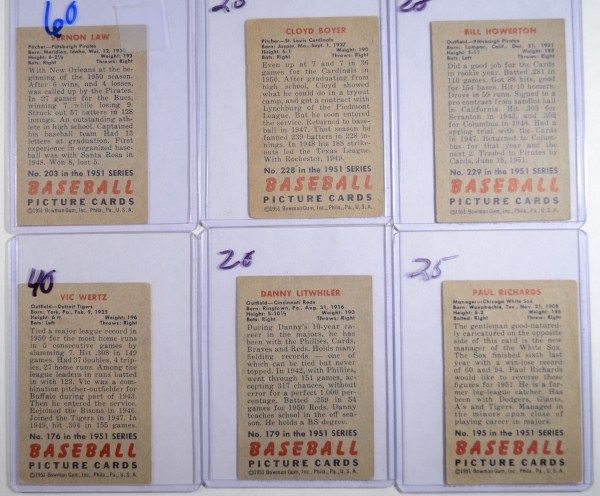 60
VERNON LAW
Pitcher—Pittsburgh Pirates
Born: Meridian, Idaho, Mar. 12, 1930
Height: 6-2½ Weight: 193
Bats: Right Throws: Right
With New Orleans at the beginning of the 1950 season. After 6 wins, and 4 losses, was called up by the Pirates. In 27 games for the Bucs, winning 7 while losing 9. Struck out 57 batters in 128 innings. An outstanding athlete in high school. Captained his baseball team. Had 13 letters at graduation. First experience in organized baseball was with Santa Rosa in 1948. Won 8, lost 5.
No. 203 in the 1951 SERIES
BASEBALL
PICTURE CARDS
©1951 Bowman Gum, Inc., Phila., Pa., U.S.A.
CLOYD BOYER
Pitcher—St. Louis Cardinals
Born: Jasper, Mo., Sept. 1, 1927
Height: 6-1 Weight: 190
Bats: Right Throws: Right
Even up at 7 and 7 in 36 games for the Cardinals in 1950. After graduating from high school, Cloyd showed what he could do in a tryout camp, and got a contract with Lynchburg of the Piedmont League. But he soon entered the service. Returned to baseball in 1947. That season he fanned 239 batters in 228 innings. In 1948 his 188 strikeouts led the Texas League. With Rochester, 1949.
No. 228 in the 1951 SERIES
BASEBALL
PICTURE CARDS
©1951 Bowman Gum, Inc., Phila., Pa., U.S.A.
BILL HOWERTON
Outfield—Pittsburgh Pirates
Born: Lompoc, Calif., Dec. 1921
Height: 5-11 Weight: 185
Bats: Left Throws: Right
Did a good job for the Cards in rookie year. Batted .281 in 110 games. Got 88 hits, good for 154 bases. Hit 10 homers. Drove in 59 runs. Signed to a pro contract from sandlot ball in California. Hit .305 for Scranton in 1943, and .302 for Columbus in 1946. Had a spring trial with the Cards in 1947. Returned to Columbus for that year and the next 2. Traded to Pirates by Cards, June 15, 1951.
No. 229 in the 1951 SERIES
BASEBALL
PICTURE CARDS
©1951 Bowman Gum, Inc., Phila., Pa., U.S.A.
40
VIC WERTZ
Outfield—Detroit Tigers
Born: York, Pa., Feb. 9, 1925
Height: 6 ft. Weight: 196
Bats: Left Throws: Right
Tied a major league record in 1950 for the most home runs in 5 consecutive games by slamming 7. Hit .308 in 149 games. Had 37 doubles, 4 triples, 27 home runs. Among the league leaders in runs batted in with 123. Vic was a combination pitcher-outfielder for Buffalo during part of 1943. Then he entered the service. Rejoined the Bisons in 1946. Joined the Tigers in 1947. In 1949, hit .304 in 155 games.
No. 176 in the 1951 SERIES
BASEBALL
PICTURE CARDS
©1951 Bowman Gum, Inc., Phila., Pa., U.S.A.
20
DANNY LITWHILER
Outfield—Cincinnati Reds
Born: Ringtown, Pa., Aug. 31, 1916
Height: 5-10½ Weight: 190
Bats: Right Throws: Right
During Danny's 10-year career in the majors, he has been with the Phillies, Cards, Braves and Reds. Holds many fielding records — one of which can never be topped. In 1942, with Phillies, went through 151 games, accepting 317 chances, without error for a perfect 1.000 percentage. Batted .259 in 54 games for 1950 Reds. Danny teaches school in the off season. He holds a BS degree.
No. 179 in the 1951 SERIES
BASEBALL
PICTURE CARDS
©1951 Bowman Gum, Inc., Phila., Pa., U.S.A.
25
PAUL RICHARDS
Manager—Chicago White Sox
Born: Waxahachie, Tex., Nov. 21, 1908
Height: 6-2 Weight: 180
Batted: Right Threw: Right
The gentleman good-naturedly caricatured on the opposite side of this card is the new manager of the White Sox. The Sox finished sixth last year with a win-lose record of 60 and 94. Paul Richards would like to reverse those figures for 1951. He is a former big-league catcher. Has been with Dodgers, Giants, A's and Tigers. Managed in the minors upon close of playing career in majors.
No. 195 in the 1951 SERIES
BASEBALL
PICTURE CARDS
©1951 Bowman Gum, Inc., Phila., Pa., U.S.A.